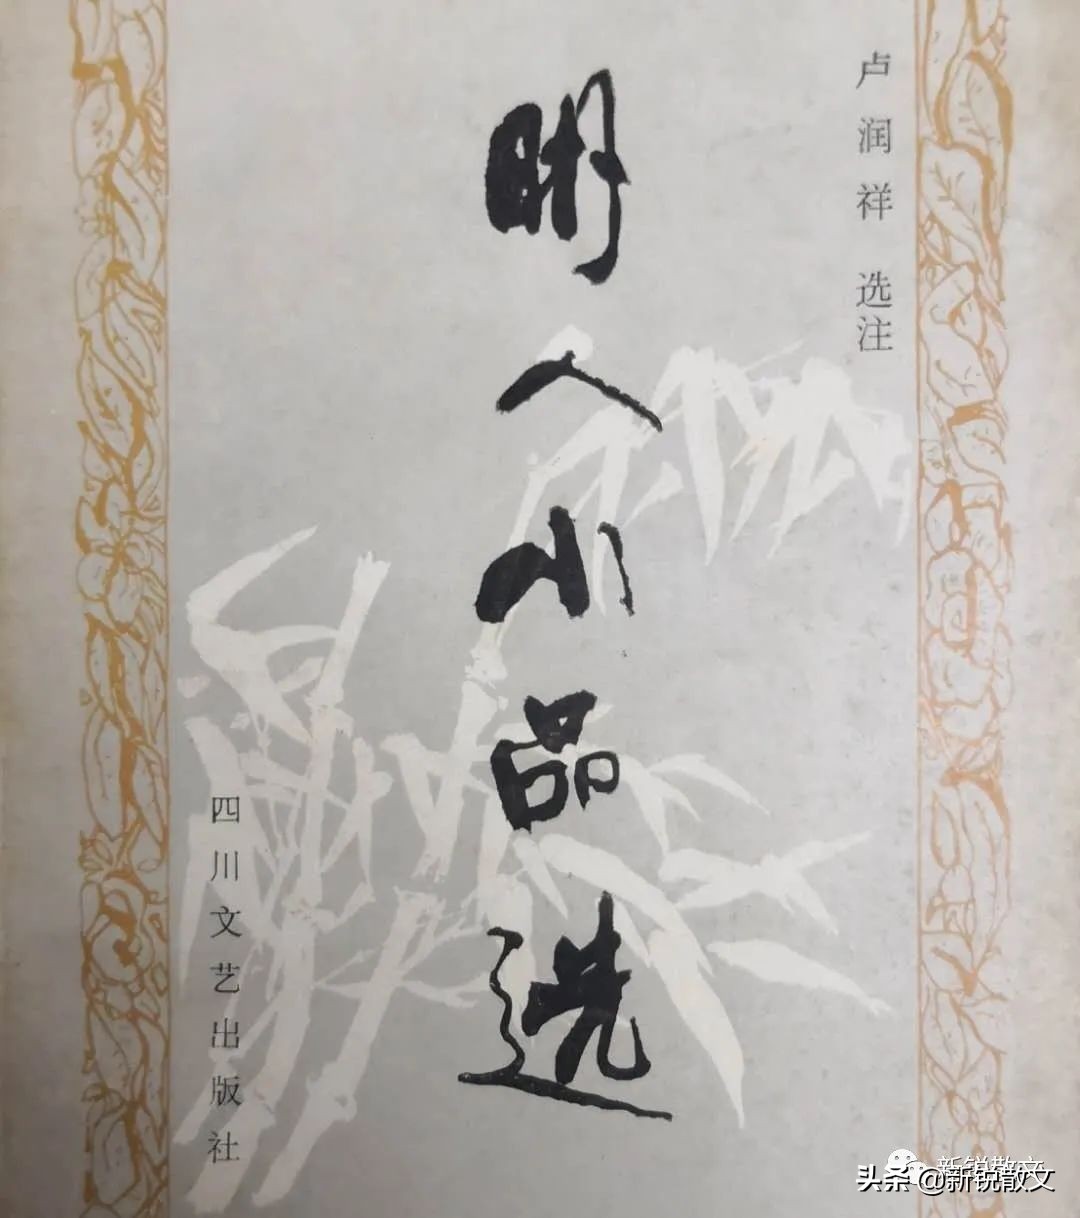 卢润祥 选注
明人小品选
四川文艺出版社
新锐散文
头条 @新锐散文